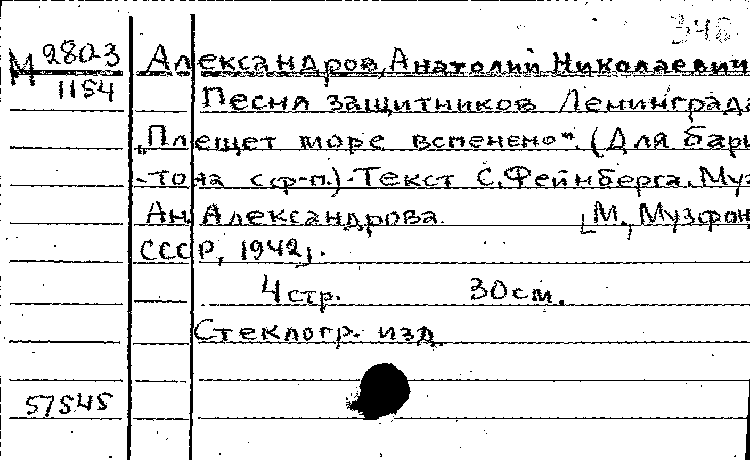 348
М 280-3
1154
Александров, Анатолий Николаевич
Песня защитников Ленинграда
„Плещет море вспенено". (Для бари
-тона с ф-п.)-Текст С. Фейнберга. Муз
Ан. Александрова. [М., Музфонд
СССР, 1942].
4 стр. 30 см.
Стеклогр. изд
57545